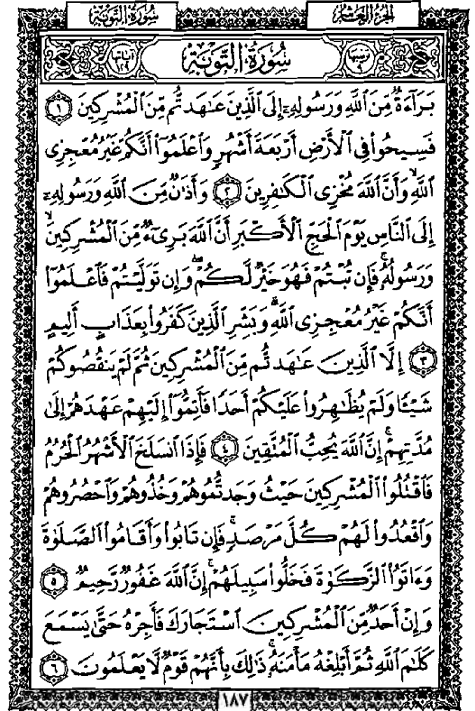 سُورَةُ التَّوْبَةِ الجُزْءُ العَاشِرُ
سُورَةُ التَّوْبَةِ
بَرَآءَةٌ مِّنَ ٱللَّهِ وَرَسُولِهِۦٓ إِلَى ٱلَّذِينَ عَـٰهَدتُّم مِّنَ ٱلْمُشْرِكِينَ ١
فَسِيحُوا۟ فِى ٱلْأَرْضِ أَرْبَعَةَ أَشْهُرٍ وَٱعْلَمُوٓا۟ أَنَّكُمْ غَيْرُ مُعْجِزِى
ٱللَّهِ ۙ وَأَنَّ ٱللَّهَ مُخْزِى ٱلْكَـٰفِرِينَ ٢ وَأَذَٰنٌ مِّنَ ٱللَّهِ وَرَسُولِهِۦٓ
إِلَى ٱلنَّاسِ يَوْمَ ٱلْحَجِّ ٱلْأَكْبَرِ أَنَّ ٱللَّهَ بَرِىٓءٌ مِّنَ ٱلْمُشْرِكِينَ ۙ
وَرَسُولُهُۥ ۚ فَإِن تُبْتُمْ فَهُوَ خَيْرٌ لَّكُمْ ۖ وَإِن تَوَلَّيْتُمْ فَٱعْلَمُوٓا۟
أَنَّكُمْ غَيْرُ مُعْجِزِى ٱللَّهِ ۗ وَبَشِّرِ ٱلَّذِينَ كَفَرُوا۟ بِعَذَابٍ أَلِيمٍ
٣ إِلَّا ٱلَّذِينَ عَـٰهَدتُّم مِّنَ ٱلْمُشْرِكِينَ ثُمَّ لَمْ يَنقُصُوكُمْ
شَيْـًٔا وَلَمْ يُظَـٰهِرُوا۟ عَلَيْكُمْ أَحَدًا فَأَتِمُّوٓا۟ إِلَيْهِمْ عَهْدَهُمْ إِلَىٰ
مُدَّتِهِمْ ۚ إِنَّ ٱللَّهَ يُحِبُّ ٱلْمُتَّقِينَ ٤ فَإِذَا ٱنسَلَخَ ٱلْأَشْهُرُ ٱلْحُرُمُ
فَٱقْتُلُوا۟ ٱلْمُشْرِكِينَ حَيْثُ وَجَدتُّمُوهُمْ وَخُذُوهُمْ وَٱحْصُرُوهُمْ
وَٱقْعُدُوا۟ لَهُمْ كُلَّ مَرْصَدٍ ۚ فَإِن تَابُوا۟ وَأَقَامُوا۟ ٱلصَّلَوٰةَ
وَءَاتَوُا۟ ٱلزَّكَوٰةَ فَخَلُّوا۟ سَبِيلَهُمْ ۚ إِنَّ ٱللَّهَ غَفُورٌ رَّحِيمٌ ٥
وَإِنْ أَحَدٌ مِّنَ ٱلْمُشْرِكِينَ ٱسْتَجَارَكَ فَأَجِرْهُ حَتَّىٰ يَسْمَعَ
كَلَـٰمَ ٱللَّهِ ثُمَّ أَبْلِغْهُ مَأْمَنَهُۥ ۚ ذَٰلِكَ بِأَنَّهُمْ قَوْمٌ لَّا يَعْلَمُونَ ٦
١٨٧